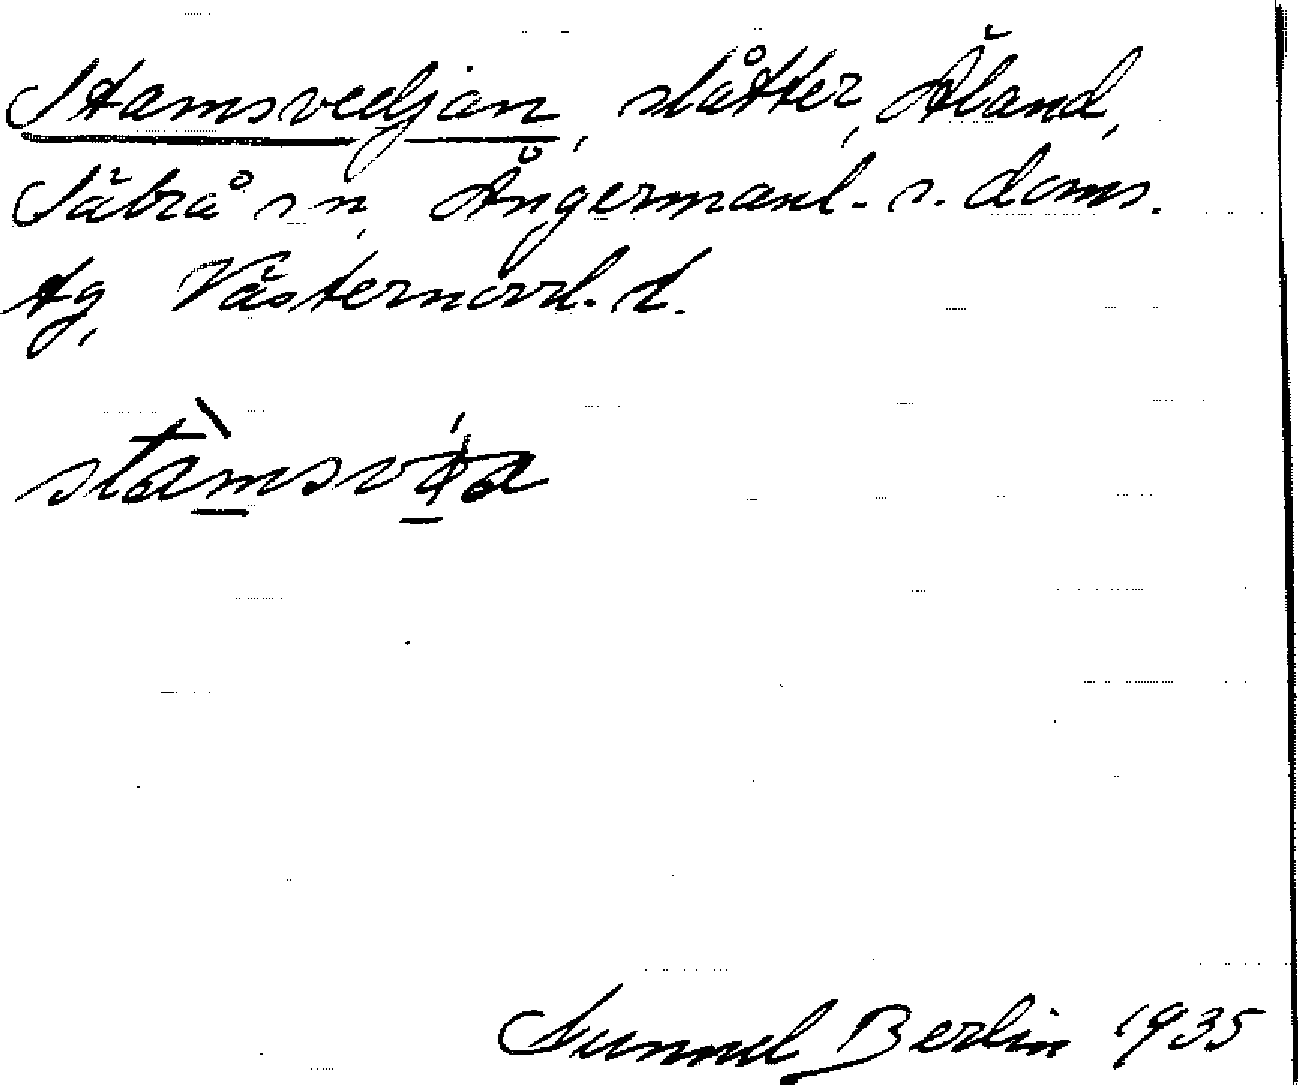 Stamsvedjan, slåtter, Äland,
Säbrå sn, Ångermanl. s. doms.
tg, Västernorrl. l.
Gunnel Berlin 1935